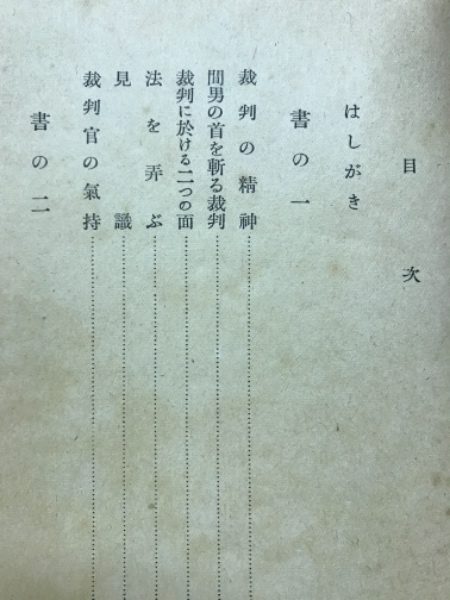 目次
はしがき
書の一
裁判の精神
間男の首を斬る裁判
裁判に於ける二つの面
法を弄ぶ
見識
裁判官の氣持
書の二